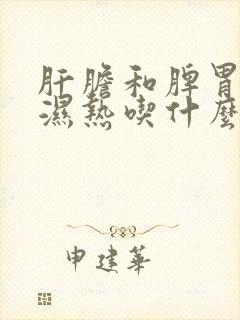 肝膽和脾胃
濕熱喫什麼
申建華